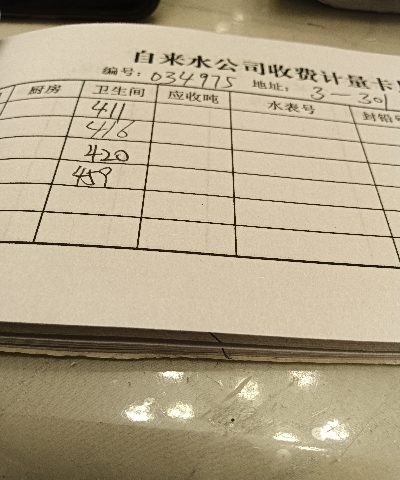 自来水公司收费计量卡
编号：034975 地址：3-301
厨房 卫生间 应收吨 水表号 封铅
411
416
420
459